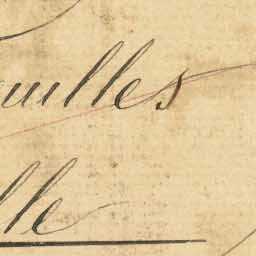 uilles
lle